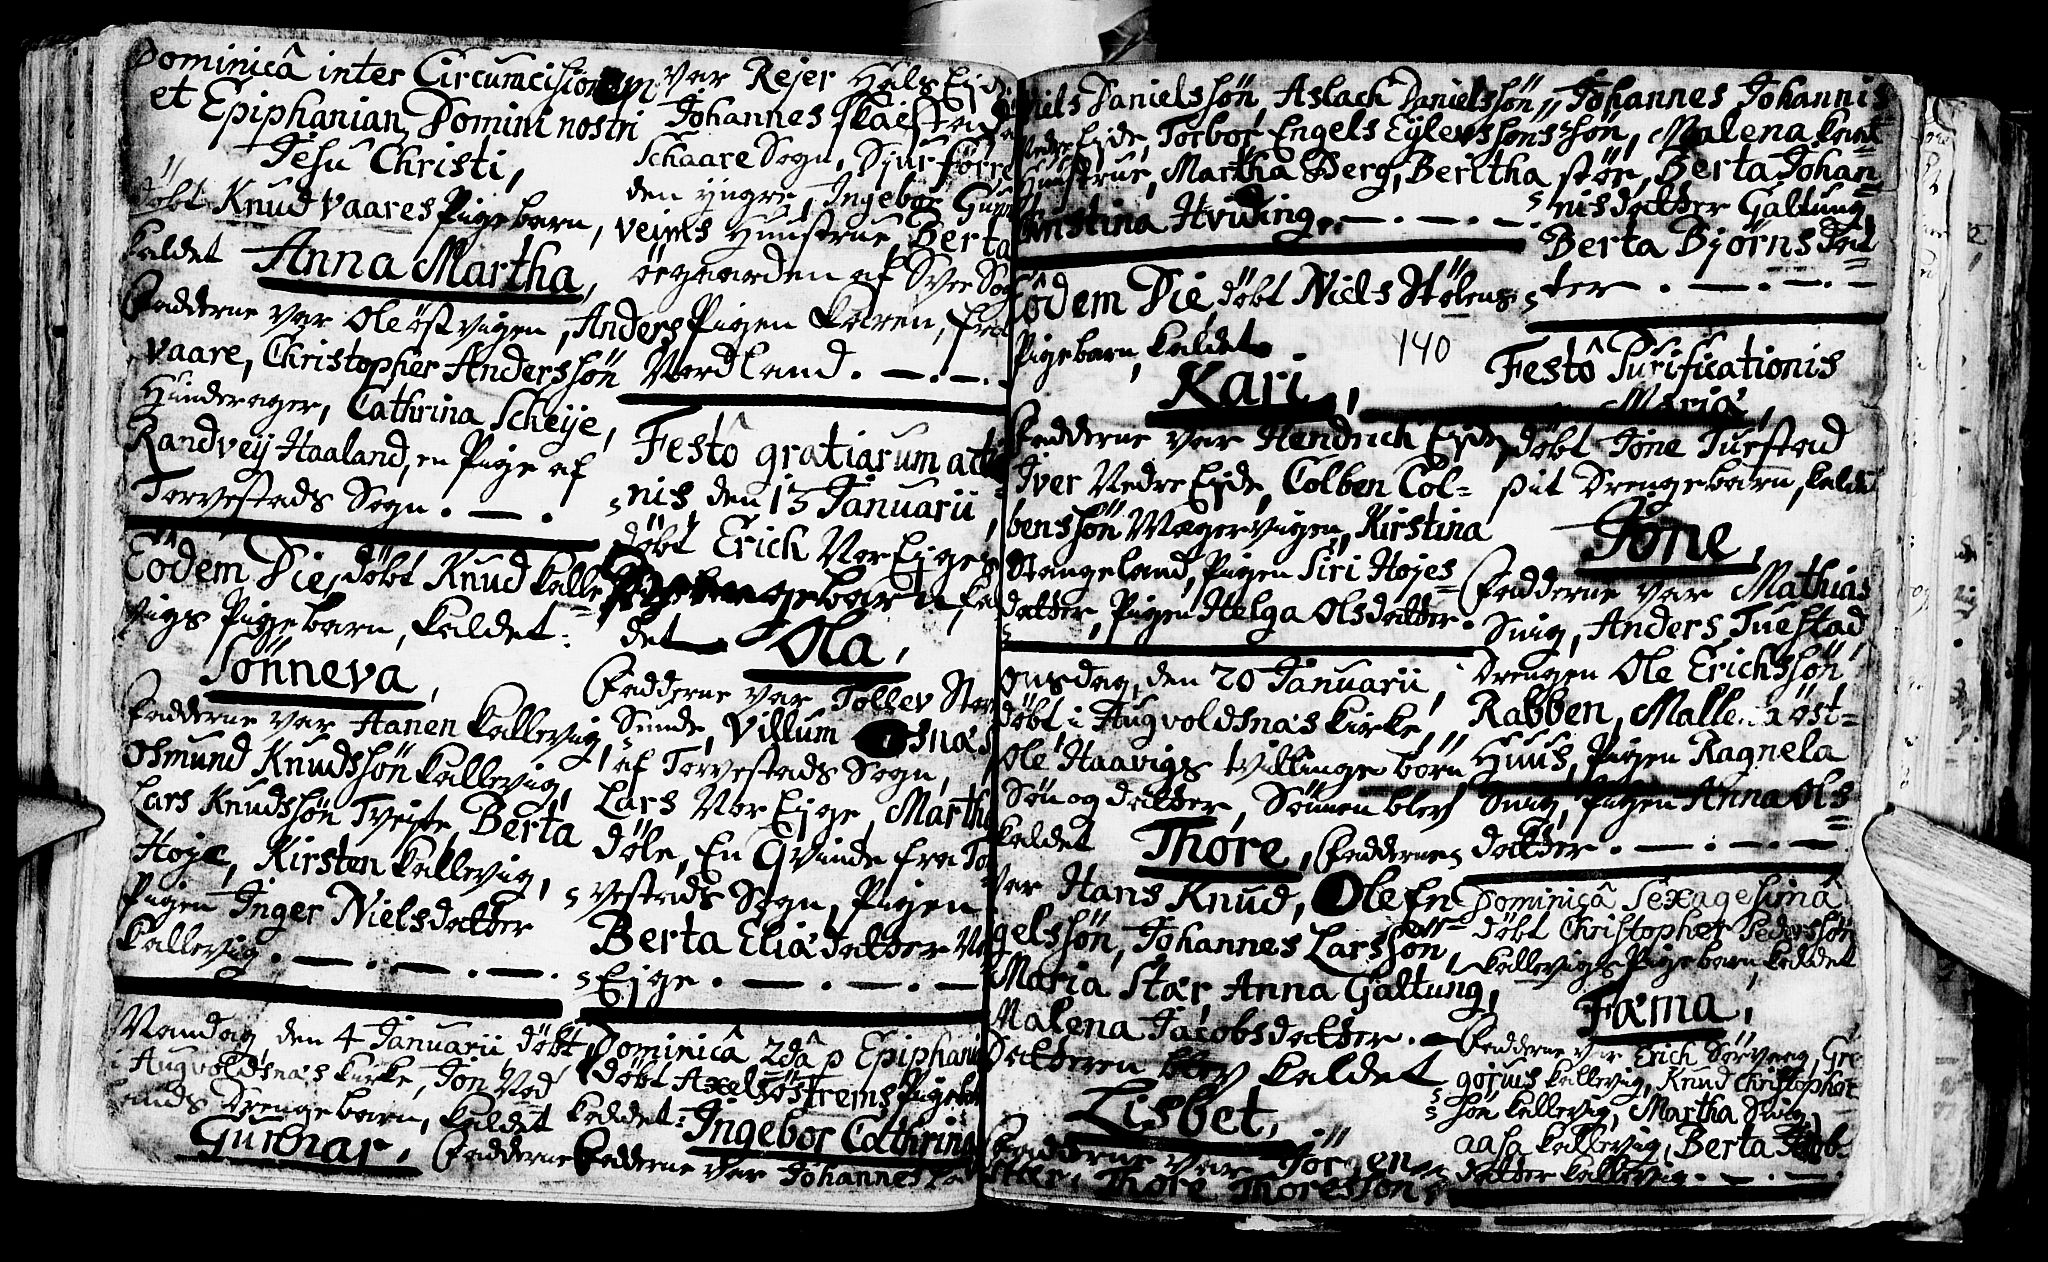 Dominicâ inter Circumcisionem
et Epiphanian Domini nostri
Jesu Christi,
döbt Knud Vaares Pigebarn,
kaldet Anna Martha,
Fadderne var Ole östvigen, Anders
Vaare, Christopher Anderssön
Hunderager, Cathrina Scheije,
Randveij Haaland, en Pige af
Torvestads Sogn. — .
Eödem Die, döbt Knud Kalle
vigs Pigebarn, kaldet:
Sönneva,
Fadderne var Hanen Kallevig,
Osmund Knudssön Kallevig,
Lars Knudssön Tveite, Berta
Höje, Kirsten Kallevig,
Pigen Inger Nielsdatter
Kallevig. — . — . — .
Mandag den 4 Januarii döbt
i Augvoldsnæs Kirke, Jon Vod
lands Drengebarn, kaldet
Gunnar. Fadderne
var Rejer Hals Ejde
Johannes
Schaare Sogn, Sjur Förre
den yngre, Ingebor Gun
veigs Hunstrue, Berta
öegaarden af Svee Sog
Pigen Karen, fra
Nordland. — . — .
Festô gratiarum actio
nis den 13 Januarii,
döbt Erich Nor Ejges
Drengebarn kal
det Ola,
Fadderne var Tollev Stor
Sunde, Villum Osnæs
af Torvestads Sogn,
Lars Nor Ejge, Martha
Döle, En Qvinde fra Tor
vestads Sogn, Pigen
Berta Eliædatter No
Ejge. — . — . —
Dominicâ 2dâ p Epiphani
döbt Axel Söstrems Pigeba
kaldet: Ingebor Cathrina
Fadderne var Johannes
Nils Danielssön, Aslach Danielssön,
Nedre Ejde, Torbor Engels Eylevssöns
Hunstrue, Martha Berg, Beritha
Christina Hviding. — . — . —
Eödem Die, döbt Niels Stölens
Pigebarn, kaldet 140
Kari,
Fadderne var Hendrich Ejde,
Iver Nedre Ejde, Colben Col=
benssön Wægervigen, Kirstina
Stangeland, Pigen Siri Höjes=
datter, Pigen Helga Olsdatter.
Onsdag, den 20 Januarii,
döbt i Augvoldsnæs Kirke,
Ole Haavigs tvillinge börn,
Sön og datter, Sönnen blev
kaldet Thore, Fadderne
var Hans Knud, Ole En
gelssön, Johannes Larssön,
Maria Stær, Anna Galtung,
Malena Jacobsdatter. —
Datteren blev kaldet
Lisbet,
Fadderne var Jörgen
Stær, Thore Thoressön,
Johannes Johannis
sön, Malena Kart=
stör, Berta Johan=
nisdatter Galtung,
Berta Björnsdat=
ter. — . — . —
Festô Purificationis
Mariæ,
döbt Jone Tuestad
sit Drengebarn, kaldet
Jone,
Fadderne var Mathias
Snig, Anders Tuestad,
Drengen Ole Erichssön
Rabben, Mallena öst=
Huus, Pigen Ragnela
Snig, Pigen Anna Ols=
datter. — . — . —
Dominicâ Sexagesimâ
döbt Christopher Pederssön
Kallevigs Pigebarn, kaldet
Fæma,
Fadderne var Erich Sörvaag, Gre
gorius Kallevig, Knud Christopher
sön Kallevig, Martha Snig,
Aasa Kallevig, Berta
datter Kallevig. — . — .